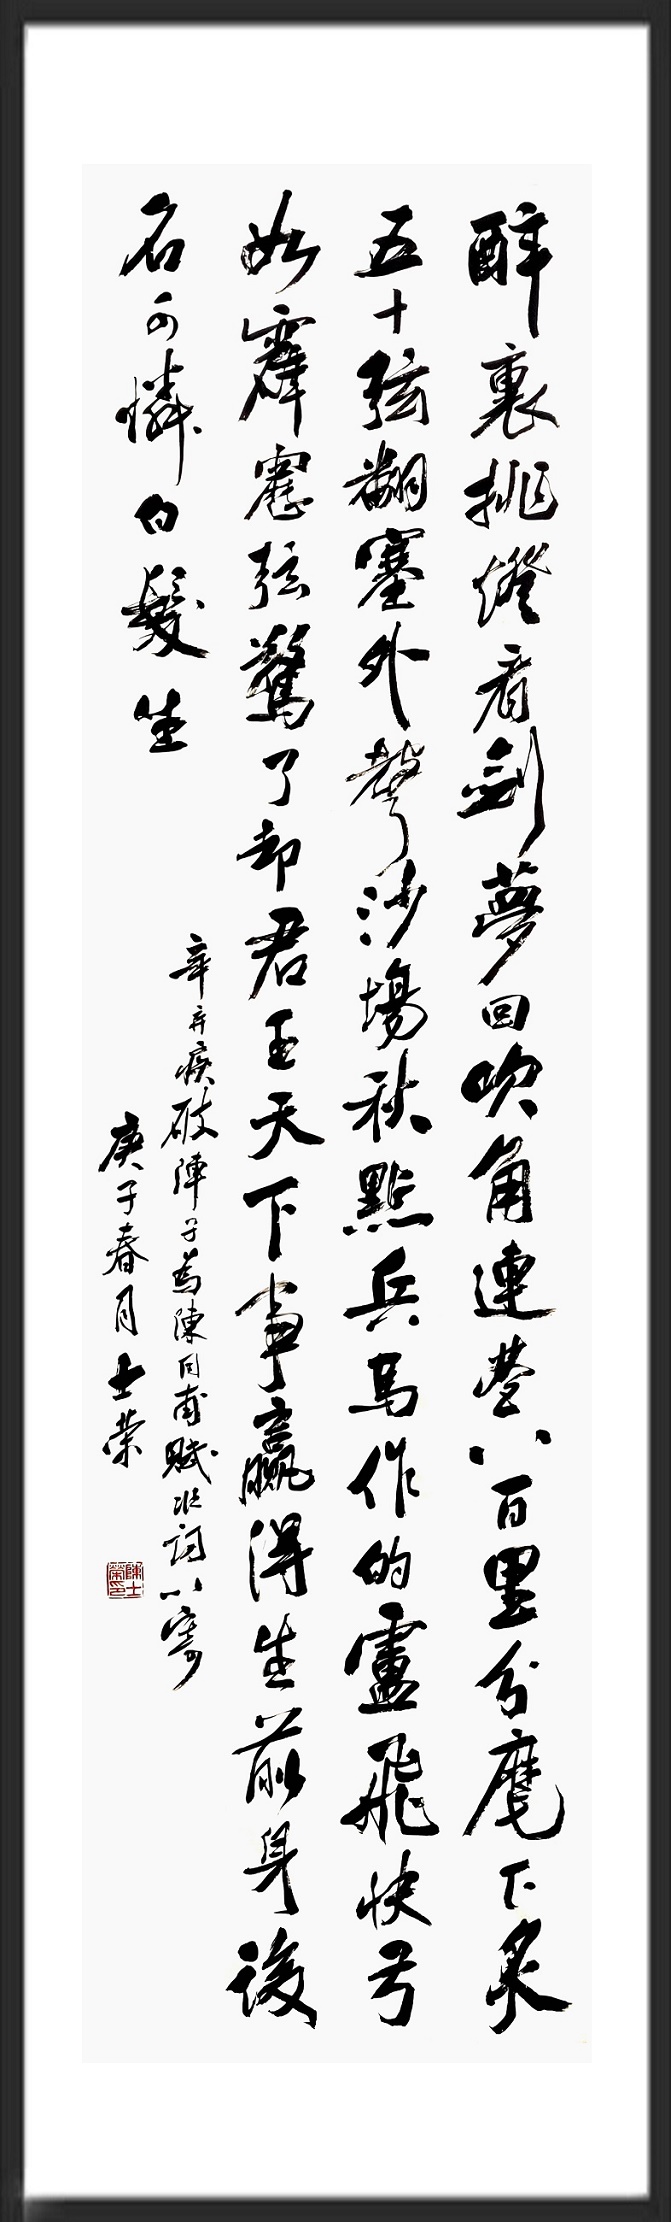 醉裏挑燈看劍夢回吹角連營八百里分麾下炙
五十弦翻塞外聲沙場秋點兵馬作的盧飛快弓
如霹靂弦驚了却君王天下事贏得生前身後
名可憐白髮生
辛弃疾破陣子爲陳同甫賦壯詞以寄
庚子春月士荣
陳士榮印